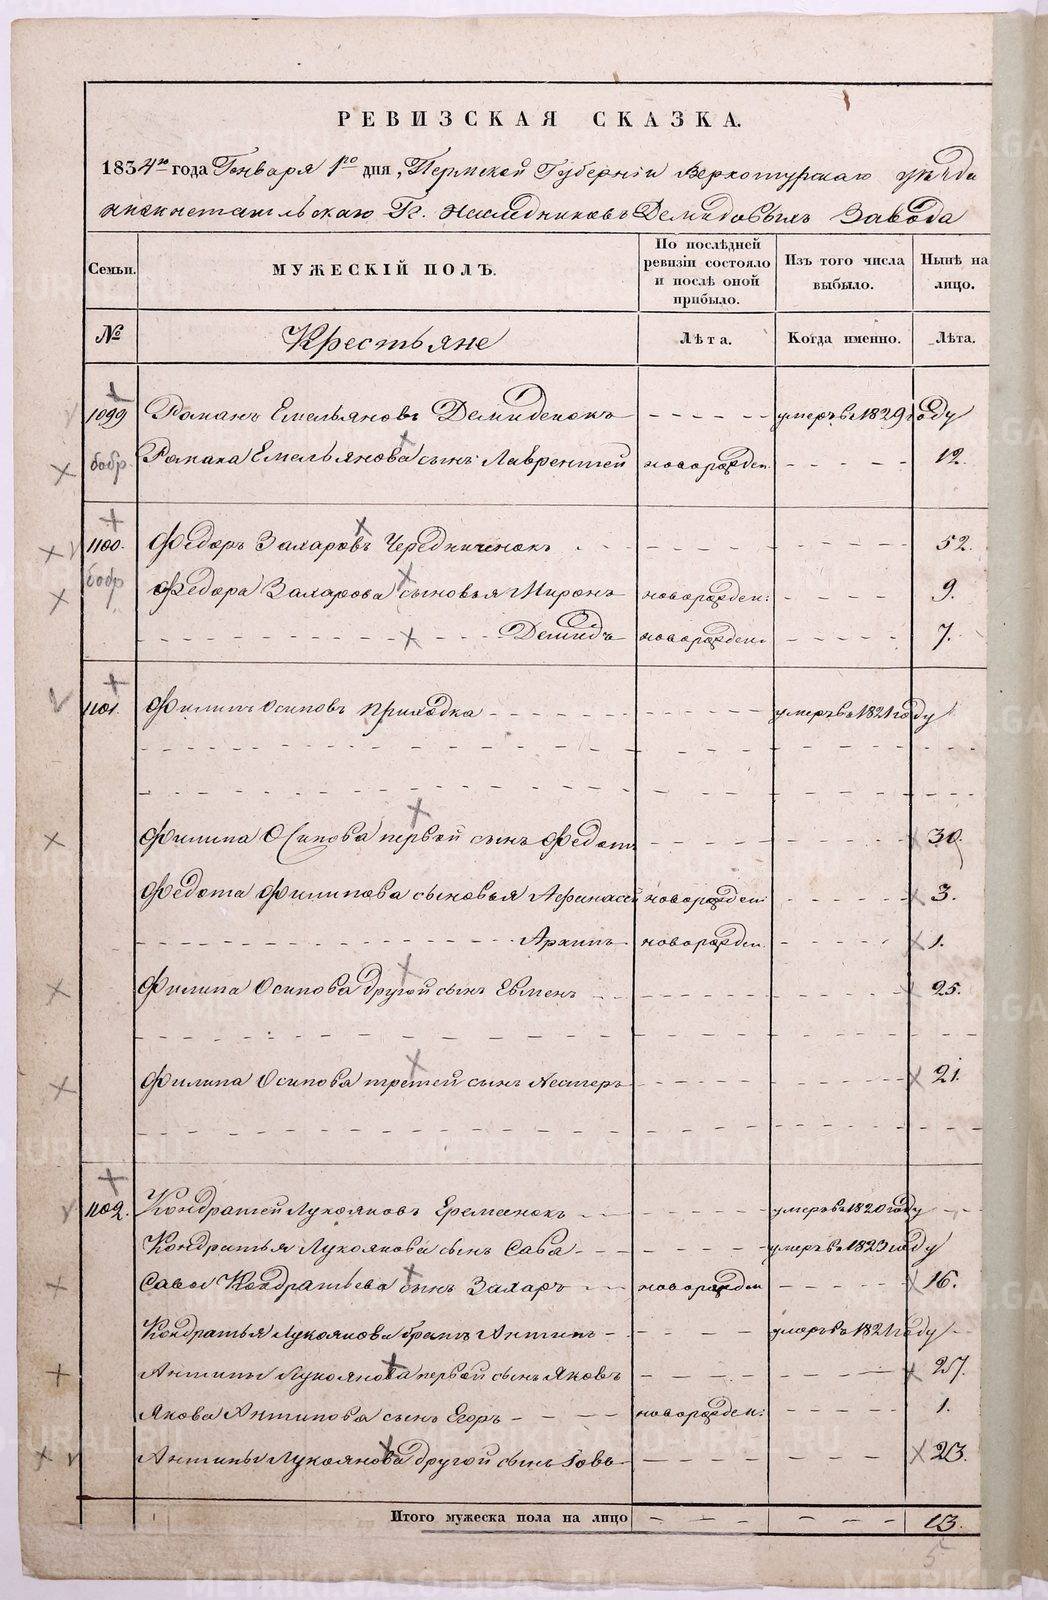 РЕВИЗСКАЯ СКАЗКА.
1834го года Генваря 1го дня, Пермской Губернiи Верхотурскаго уѣзда
Нижнетагильскаго Г. Наслѣдниковъ Демидовыхъ Завода
Семьи. МУЖЕСКIЙ ПОЛЪ. По послѣдней ревизiи состояло и послѣ оной прибыло. Изъ того числа выбыло. Нынѣ на лицо.
№ Крестьяне Лѣта. Когда именно. Лѣта.
1099 Романъ Емельяновъ Демиденокъ умеръ въ 1829 году
бобр. Романа Емельянова сынъ Лаврентей новорожден. 12.
1100. Федоръ Захаровъ Чередниченокъ 52.
бобр Федора Захарова сыновья Миронъ новорожден: 9.
Демидъ новорожден. 7.
1101. Филипъ Осиповъ Приходка умеръ въ 1821 году
Филипа Осипова первой сынъ Федотъ 30.
Федота Филипова сыновья Афанасей новорожден: 3.
Архипъ новорожден. 1.
Филипа Осипова другой сынъ Евменъ 25.
Филипа Осипова третей сынъ Нестеръ 21.
1102. Кондратей Лукояновъ Еремеенокъ умеръ въ 1820 году
Кондратья Лукоянова сынъ Сава умеръ въ 1823 году
Савы Кондратьева сынъ Захаръ новорожден 16.
Кондратья Лукоянова братъ Антипъ умеръ въ 1821 году
Антипы Лукоянова первой сынъ Яковъ 27.
Якова Антипова сынъ Егоръ новорожден: 1.
Антипы Лукоянова другой сынъ Iовъ 23.
Итого мужеска пола на лицо 13.
5
METRIKI.GASO-URAL.RU